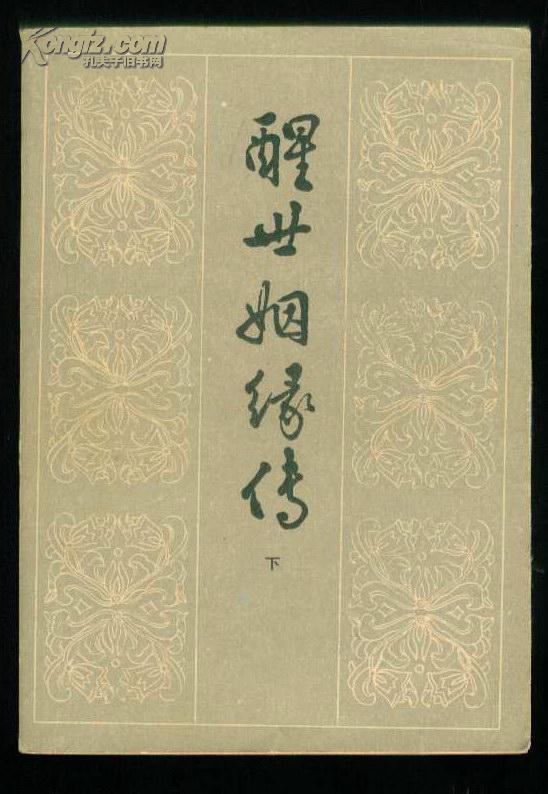 Kongfz.com
孔夫子旧书网
醒世姻缘传
下